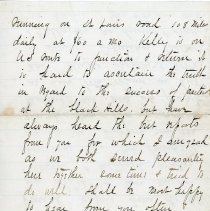 running on St Louis road 108 Miles
daily at $60 a Mo. Kelly is on
to junction & return it
is hard to ascertain the truth
in regard to the success of parties
at the Black Hills. but have
always heard the best reports
from you for which I
as we both
here together some times & tried to
do well shall be most happy
to hear from you often &